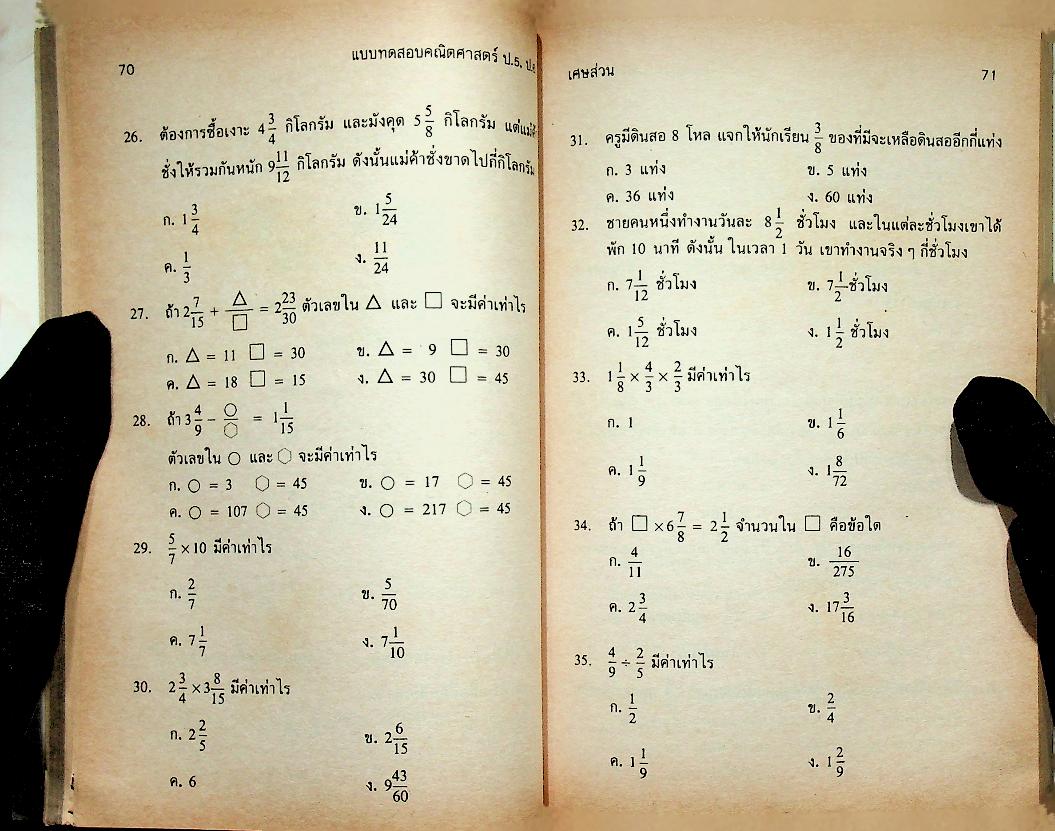 70
แบบทดสอบคณิตศาสตร์ ป.5,
26. ต้องการซื้อเงาะ 4 3/4 กิโลกรัม และมังคุด 5 5/8 กิโลกรัม
ชั่งให้รวมกันหนัก 9 11/12 กิโลกรัม ดังนั้นแม่ค้าชั่งขาดไปกี่กิโลกรัม
ก. 1 3/4 ข. 1 5/24
ค. 1/3 ง. 11/24
27. ถ้า 2 7/15 + △/□ = 2 23/30 ตัวเลขใน △ และ □ จะมีค่าเท่าไร
ก. △ = 11 □ = 30 ข. △ = 9 □ = 30
ค. △ = 18 □ = 15 ง. △ = 30 □ = 45
28. ถ้า 3 4/9 - ○/⬡ = 1 1/15
ตัวเลขใน ○ และ ⬡ จะมีค่าเท่าไร
ก. ○ = 3 ⬡ = 45 ข. ○ = 17 ⬡ = 45
ค. ○ = 107 ⬡ = 45 ง. ○ = 217 ⬡ = 45
29. 5/7 × 10 มีค่าเท่าไร
ก. 2/7 ข. 5/70
ค. 7 1/7 ง. 7 1/10
30. 2 3/4 × 3 8/15 มีค่าเท่าไร
ก. 2 2/5 ข. 2 6/15
ค. 6 ง. 9 43/60
เศษส่วน
71
31. ครูมีดินสอ 8 โหล แจกให้นักเรียน 3/8 ของที่มีจะเหลือดินสออีกกี่แท่ง
ก. 3 แท่ง ข. 5 แท่ง
ค. 36 แท่ง ง. 60 แท่ง
32. ชายคนหนึ่งทำงานวันละ 8 1/2 ชั่วโมง และในแต่ละชั่วโมงเขาได้
พัก 10 นาที ดังนั้น ในเวลา 1 วัน เขาทำงานจริง ๆ กี่ชั่วโมง
ก. 7 1/12 ชั่วโมง ข. 7 1/2 ชั่วโมง
ค. 1 5/12 ชั่วโมง ง. 1 1/2 ชั่วโมง
33. 1 1/8 × 4/3 × 2/3 มีค่าเท่าไร
ก. 1 ข. 1 1/6
ค. 1 1/9 ง. 1 8/72
34. ถ้า □ × 6 7/8 = 2 1/2 จำนวนใน □ คือข้อใด
ก. 4/11 ข. 16/275
ค. 2 3/4 ง. 17 3/16
35. 4/9 ÷ 2/5 มีค่าเท่าไร
ก. 1/2 ข. 2/4
ค. 1 1/9 ง. 1 2/9